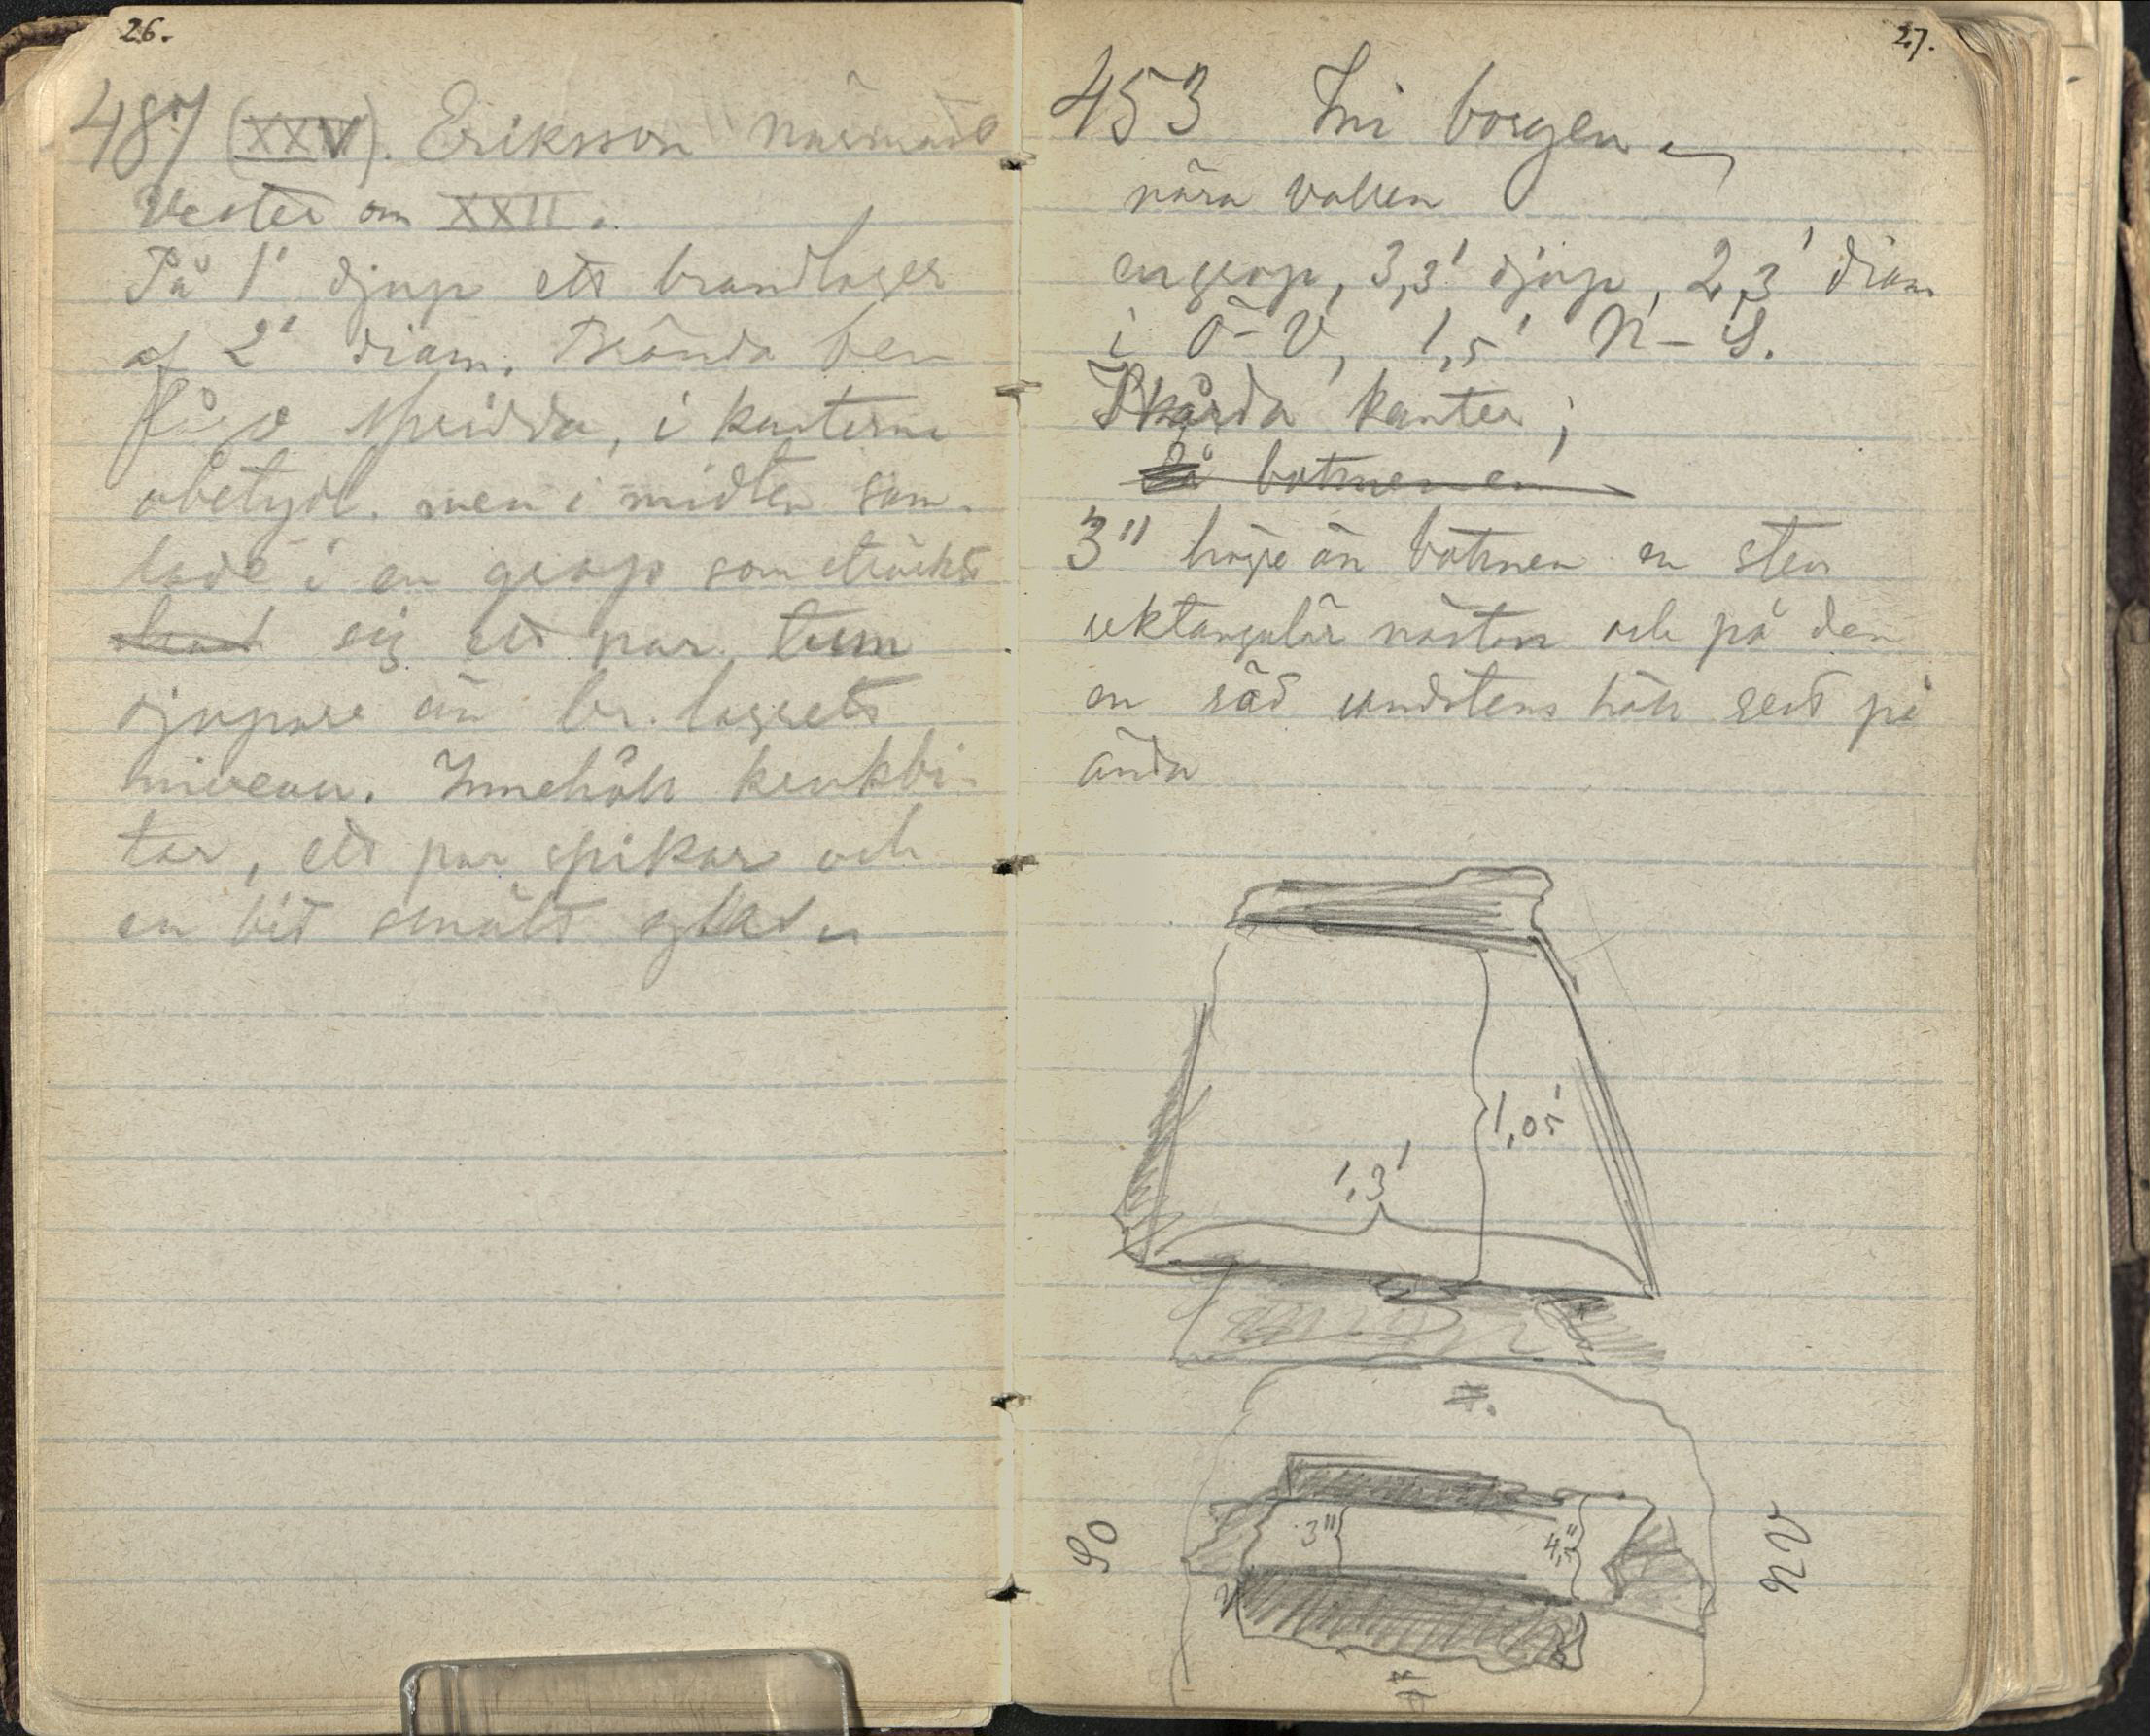 26.
487 (XXV). Eriksson närmast
Vester om XXII.
På 1' djup ett brandlager
af 2' diam. Brända ben
få o spridda, i kanterna
obetydl. men i midten sam-
lade i en grop som sträckt
sig ett par tum
djupare än br. lagrets
niveau. Innehöll krukbi-
tar, ett par spikar och
en bit smält glas
27.
453 Ini borgen
nära vallen
en grop, 3,3' djup, 2,3' diam
i Ö-V, 1,5' N-S.
Skårda kanter;
På botmenen
3" högre än botmen en sten
rektangulär nästan och på den
en röd sandstens häll rest på
ända
1,05'
1,3'
3"
4,5"
SO
NV